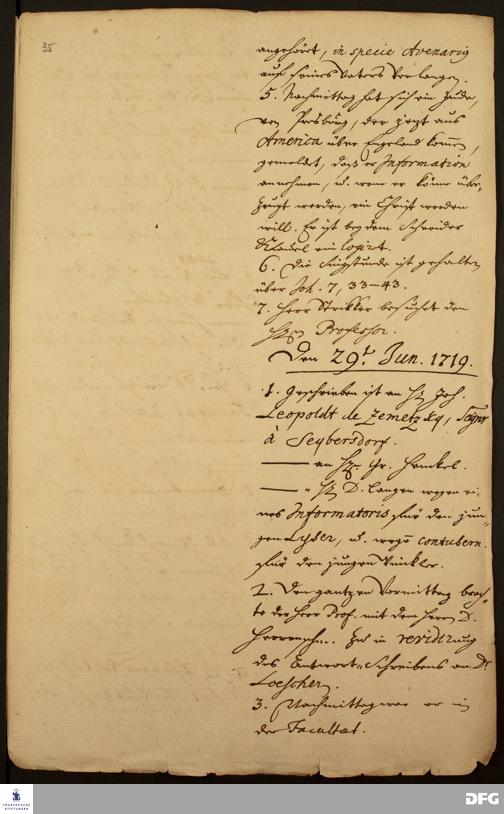 35
angehöret, in specie Avenarig
auf seines Vaters Verlangen.
5. Nachmittag hat sich ein Jude,
von Presburg, der jetzt aus
America über Engeland komt,
gemeldet, daß er Information
annehmen, u. wenn er könne über-
zeugt werden, ein Christ werden
will. Er ist bey dem Schneider
Kladel ein logirt.
6. Die Singstunde ist gehalten
über Joh. 7, 33-43.
7. Herr Strikker besuchet den
Hn Professor.
Den 29t. Jun. 1719.
1. Geschrieben ist an H Joh.
Leopoldt de Zemetzky,
à Seybersdorf.
— an H Gr. Henckel.
— " H D. Langen wegen ei-
nes Informatoris für den jun-
gen Lyser, u. wegen contubern.
für den jungen Winkler.
2. Den gantzen Vormittag brach-
te der Herr Prof. mit dem Herrn D.
Herrnschm. zu in revidirung
des Antwort-Schreibens an D.
Loescher.
3. Nachmittag war er in
der Facultæt.
FRANCKESCHE
STIFTUNGEN
DFG